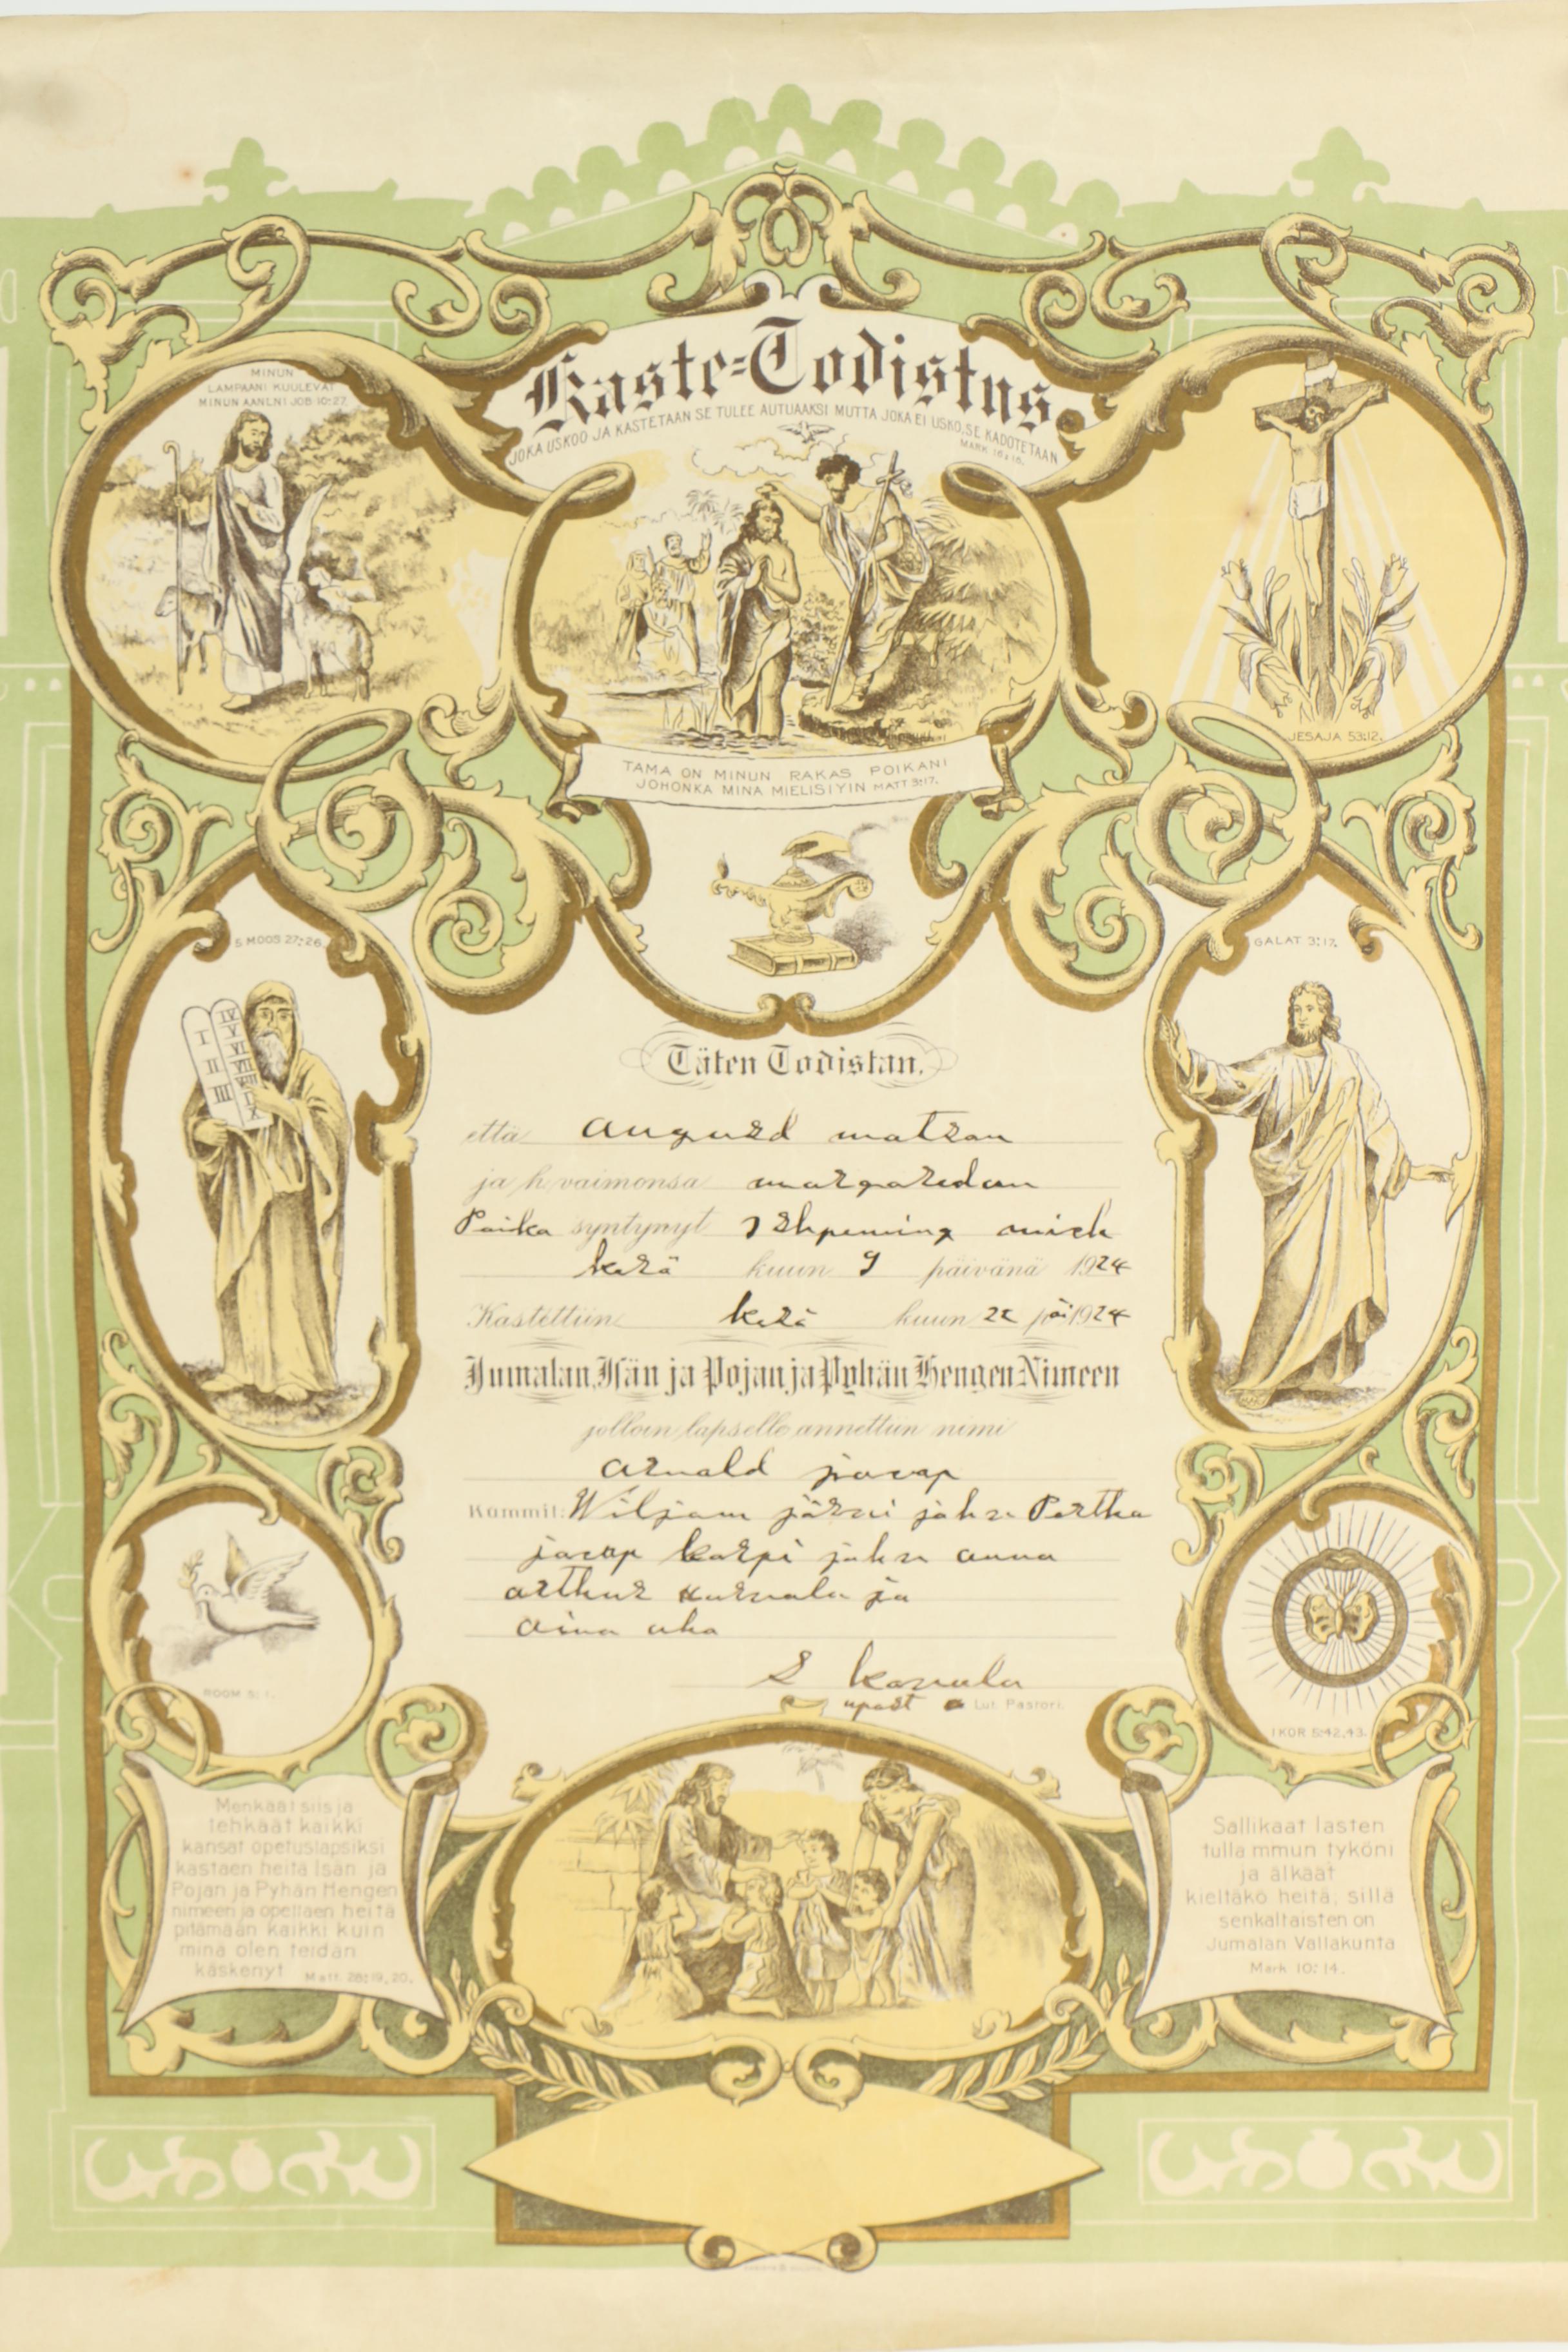 Kaste=Todistus.
JOKA USKOO JA KASTETAAN SE TULEE AUTUAAKSI MUTTA JOKA EI USKO, SE KADOTETAAN
MARK 16:16.
MINUN
LAMPAANI KUULEVAT
MINUN AANENI JOB 10:27.
JESAJA 53:12.
TAMA ON MINUN RAKAS POIKANI
JOHONKA MINA MIELISIYIN MATT 3:17.
5 MOOS 27:26.
I II III IV V VI VII VIII IX X
GALAT 3:17.
Täten Todistan.
että augusd matson
ja h vaimonsa margaredan
Poika syntynyt Ishpeming mich
kesä kuun 9 päivänä 1924
Kastettiin kesä kuun 22 päi 1924
Jumalan, Isän ja Pojan ja Pyhän Hengen Nimeen
jolloin lapselle annettiin nimi
Arnald jacap
Kummit: Wiljam järvi ja hr Pertha
jacap karpi ja hr anna
arthur ja
aina uha
S
upast Lut. Pastori.
ROOM 5:1.
I KOR 5:42,43.
Menkäät siis ja
tehkäät kaikki
kansat opetuslapsiksi
kastaen heitä Isän ja
Pojan ja Pyhän Hengen
nimeen ja opettaen heitä
pitämään kaikki kuin
minä olen teidän
käskenyt Matt. 28:19,20.
Sallikaat lasten
tulla mmun tyköni
ja älkäät
kieltäkö heitä, sillä
senkaltaisten on
Jumalan Vallakunta
Mark. 10:14.